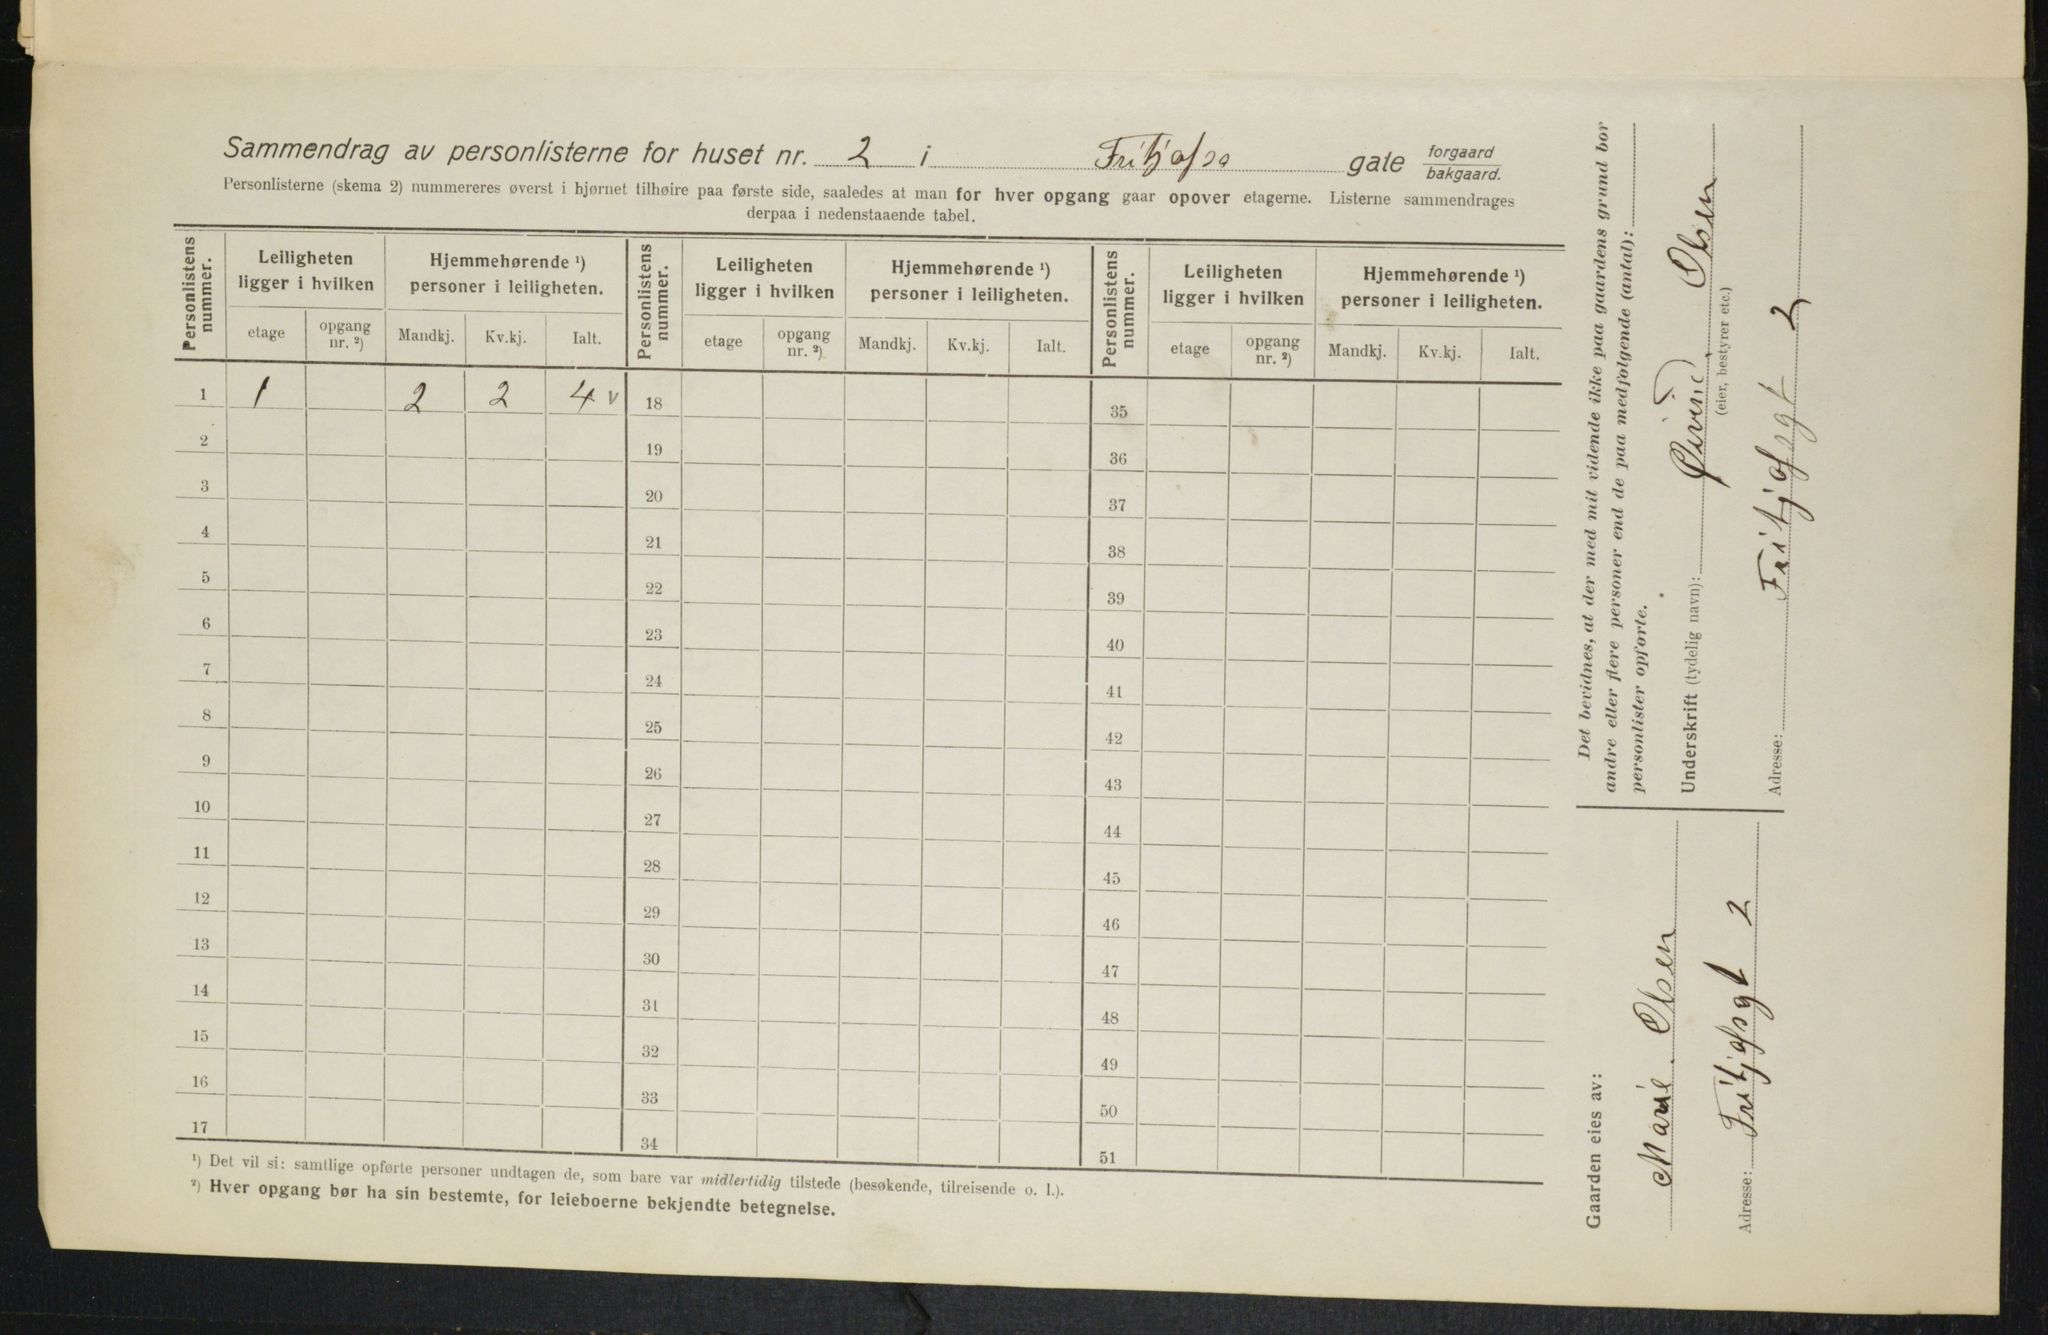 Sammendrag av personlisterne for huset nr. 2 i Fritjofs gate forgaard bakgaard.
Personlisterne (skema 2) nummereres øverst i hjørnet tilhøire paa første side, saaledes at man for hver opgang gaar opover etagerne. Listerne sammendrages
derpaa i nedenstaaende tabel.
Personlistens nummer. Leiligheten ligger i hvilken Hjemmehørende ¹) personer i leiligheten. Personlistens nummer. Leiligheten ligger i hvilken Hjemmehørende ¹) personer i leiligheten. Personlistens nummer. Leiligheten ligger i hvilken Hjemmehørende ¹) personer i leiligheten.
etage opgang nr. ²) Mandkj. Kv.kj. Ialt. etage opgang nr. ²) Mandkj. Kv.kj. Ialt. etage opgang nr. ²) Mandkj. Kv.kj. Ialt.
1 1 2 2 4 v 18 35
2 19 36
3 20 37
4 21 38
5 22 39
6 23 40
7 24 41
8 25 42
9 26 43
10 27 44
11 28 45
12 29 46
13 30 47
14 31 48
15 32 49
16 33 50
17 34 51
¹) Det vil si: samtlige opførte personer undtagen de, som bare var midlertidig tilstede (besøkende, tilreisende o. l.).
²) Hver opgang bør ha sin bestemte, for leieboerne bekjendte betegnelse.
Gaarden eies av:
Marie Olsen
Adresse: Fritjofsgt 2
Det bevidnes, at der med mit vidende ikke paa gaardens grund bor
andre eller flere personer end de paa medfølgende (antal):
personlister opførte.
Underskrift (tydelig navn): Øivind Olsen
(eier, bestyrer etc.)
Adresse: Fritjofsgt 2